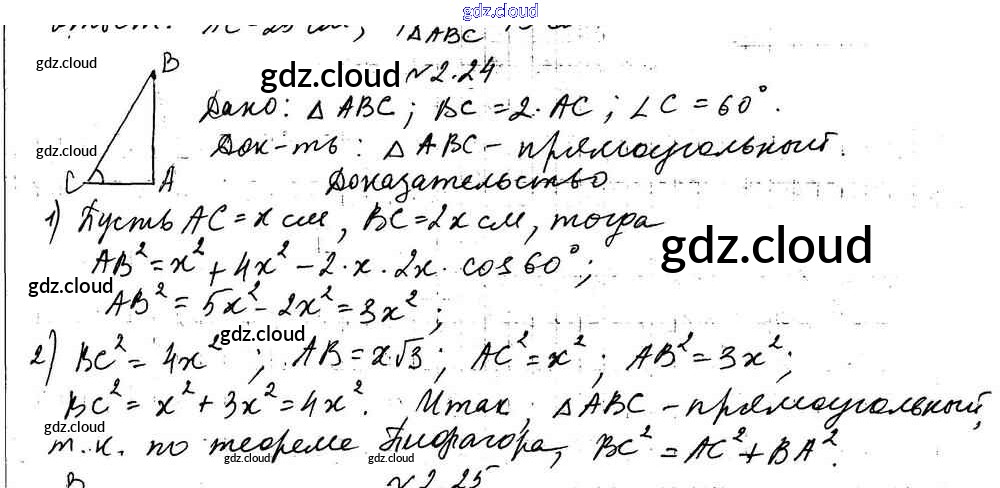 gdz.cloud
△ABC
gdz.cloud
B
gdz.cloud
№2.24
Дано: △ABC; BC = 2·AC; ∠C = 60°.
gdz.cloud
Док-ть: △ABC – прямоугольный.
C
A
Доказательство
1) Пусть AC = x см, BC = 2x см, тогда
gdz.cloud
AB² = x² + 4x² – 2·x·2x·cos 60°;
gdz.cloud
AB² = 5x² – 2x² = 3x²;
gdz.cloud
2) BC² = 4x²; AB = x√3; AC² = x²; AB² = 3x²;
BC² = x² + 3x² = 4x². Итак, △ABC – прямоугольный,
gdz.cloud
т.к. по теореме Пифагора, BC² = AC² + BA².
gdz.cloud
gdz.cloud
B
№2.25
gdz.cloud